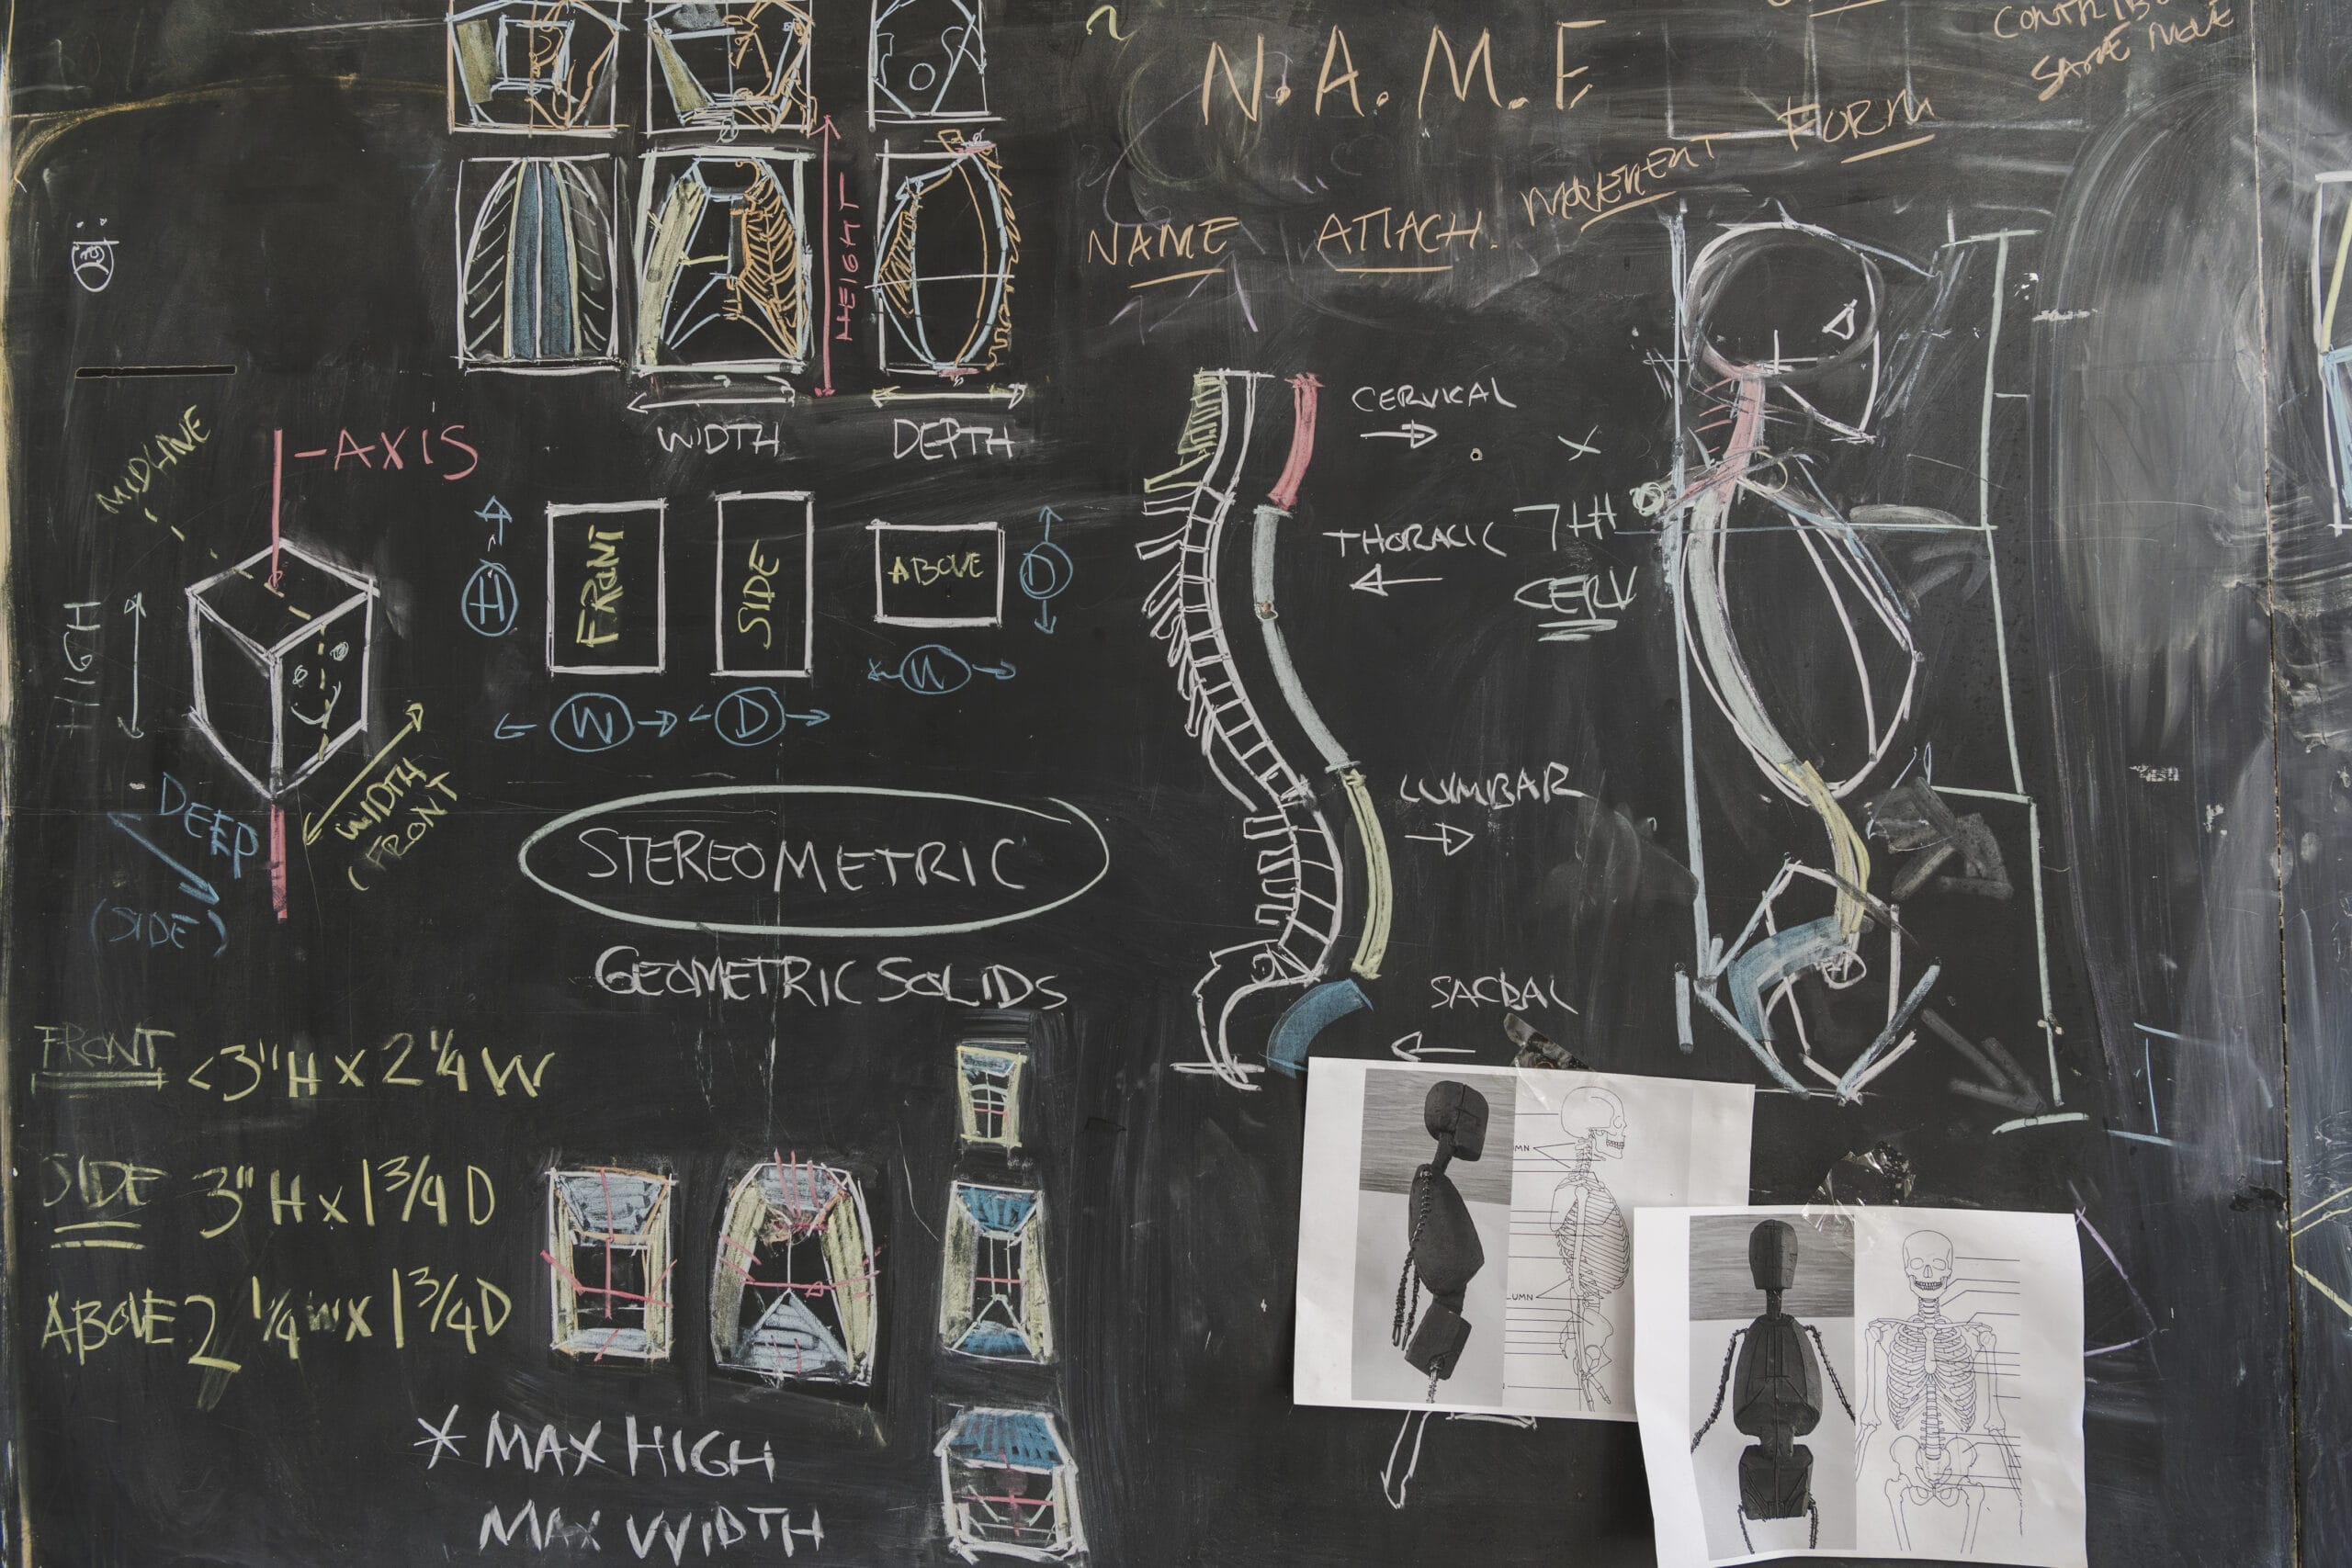 N.A.M.E
SAME
NAME ATTACH. MOVEMENT FORM
HEIGHT
WIDTH
DEPTH
MIDLINE
-AXIS
HIGH
DEEP
(SIDE)
WIDTH
(FRONT
H
FRONT
SIDE
ABOVE
D
W
D
W
STEREOMETRIC
GEOMETRIC SOLIDS
CERVICAL
THORACIC
7TH
CERV
LUMBAR
SACRAL
FRONT <3"H X 2 1/4 W
SIDE 3" H X 1 3/4 D
ABOVE 2 1/4 W X 1 3/4 D
* MAX HIGH
MAX WIDTH
UMN
LUMN